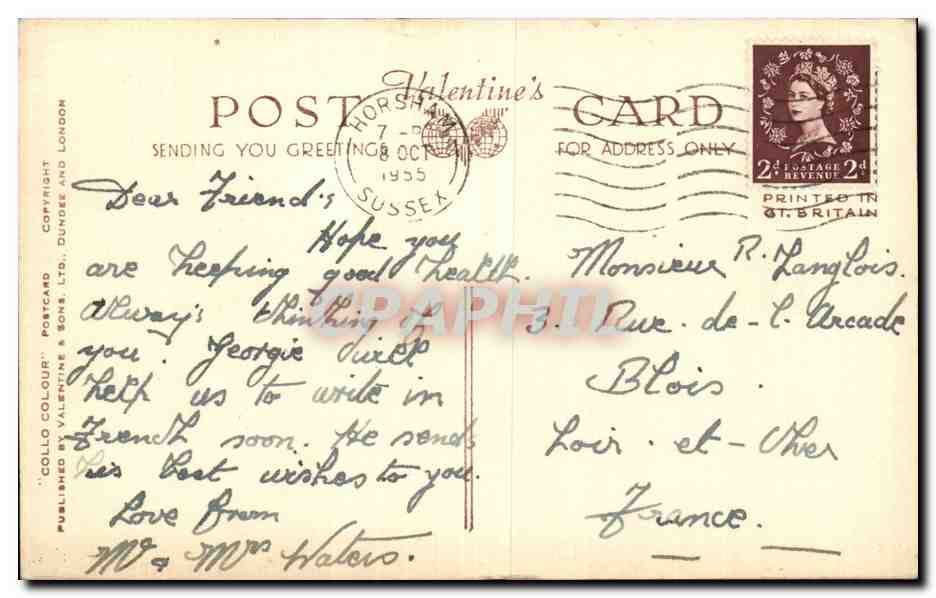 POST CARD
Valentine's
SENDING YOU GREETINGS
FOR ADDRESS ONLY
HORSHAM
8 OCT
1955
SUSSEX
2d. POSTAGE REVENUE 2d.
PRINTED IN
GT. BRITAIN
"COLLO COLOUR" POSTCARD COPYRIGHT
PUBLISHED BY VALENTINE & SONS, LTD., DUNDEE AND LONDON
Dear Friend's
Hope you
are keeping good health.
Always thinking of
you. Georgie will
help us to write in
French soon. He sends
his best wishes to you.
Love from
Mr & Mrs Waters.
Monsieur R. Langlois.
3. Rue. de-l. Arcade
Blois.
Loir-et-Cher
France.
CPAPHIL